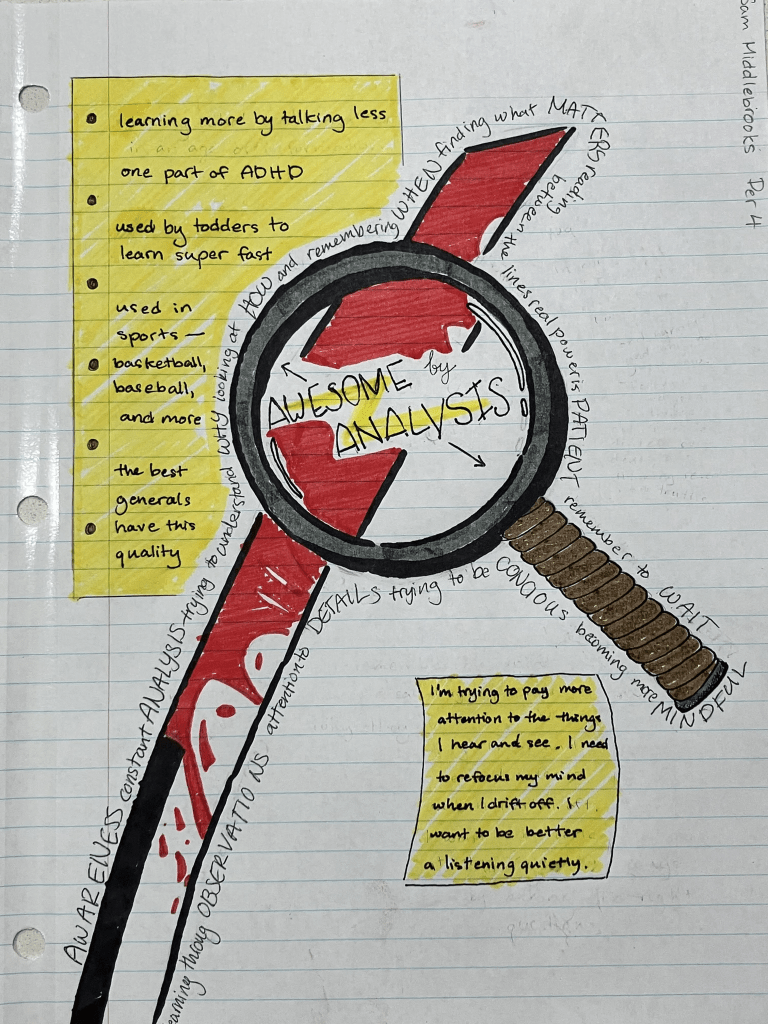 Sam Middlebrooks Per 4
learning more by talking less
one part of ADHD
used by todders to
learn super fast
used in
sports —
basketball,
baseball,
and more
the best
generals
have this
quality
AWESOME by
ANALYSIS
AWARENESS constant ANALYSIS trying to understand WHY looking at HOW and remembering WHEN finding what MATTERS reading between the lines real power is PATIENT remember to WAIT
learning throug OBSERVATIONS attention to DETAILS trying to be CONCIOUS becoming more MINDFUL
I'm trying to pay more
attention to the things
I hear and see. I need
to refocus my mind
when I drift off. I
want to be better
a listening quietly.